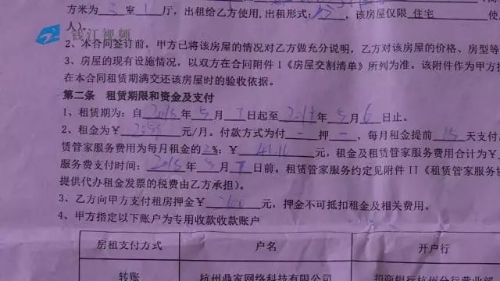 方米为 3 室 1 厅，出租给乙方使用，出租形式：，该房屋仅限 住宅
钱江视频
2、本合同签订前，甲方已将该房屋的情况对乙方做充分说明，乙方对该房屋的价格、房型等
3、房屋的现有设施情况，以双方在合同附件 I《房屋交割清单》所列为准，该附件作为甲方
在本合同租赁期满交还该房屋时的验收依据。
第二条 租赁期限和资金及支付
1、租赁期为：自 年 5 月 7 日起至 年 5 月 6 日止。
2、租金为￥ 元/月。付款方式为付 一 押 一 ，每月租金提前 天支付
赁管家服务费用为每月租金的 %：￥ 元，租金及租赁管家服务费用合计为￥
服务费支付时间： 年 5 月 7 日前，租赁管家服务约定见附件 II《租赁管家服
提供代办租金发票的税费由乙方承担）。
3、乙方向甲方支付租房押金￥ 元，押金不可抵扣租金及相关费用。
4、甲方指定以下账户为专用收款收款账户
居租支付方式 户名 开户行
转账 杭州鼎家网络科技有限公司 招商银行杭州分行营业部